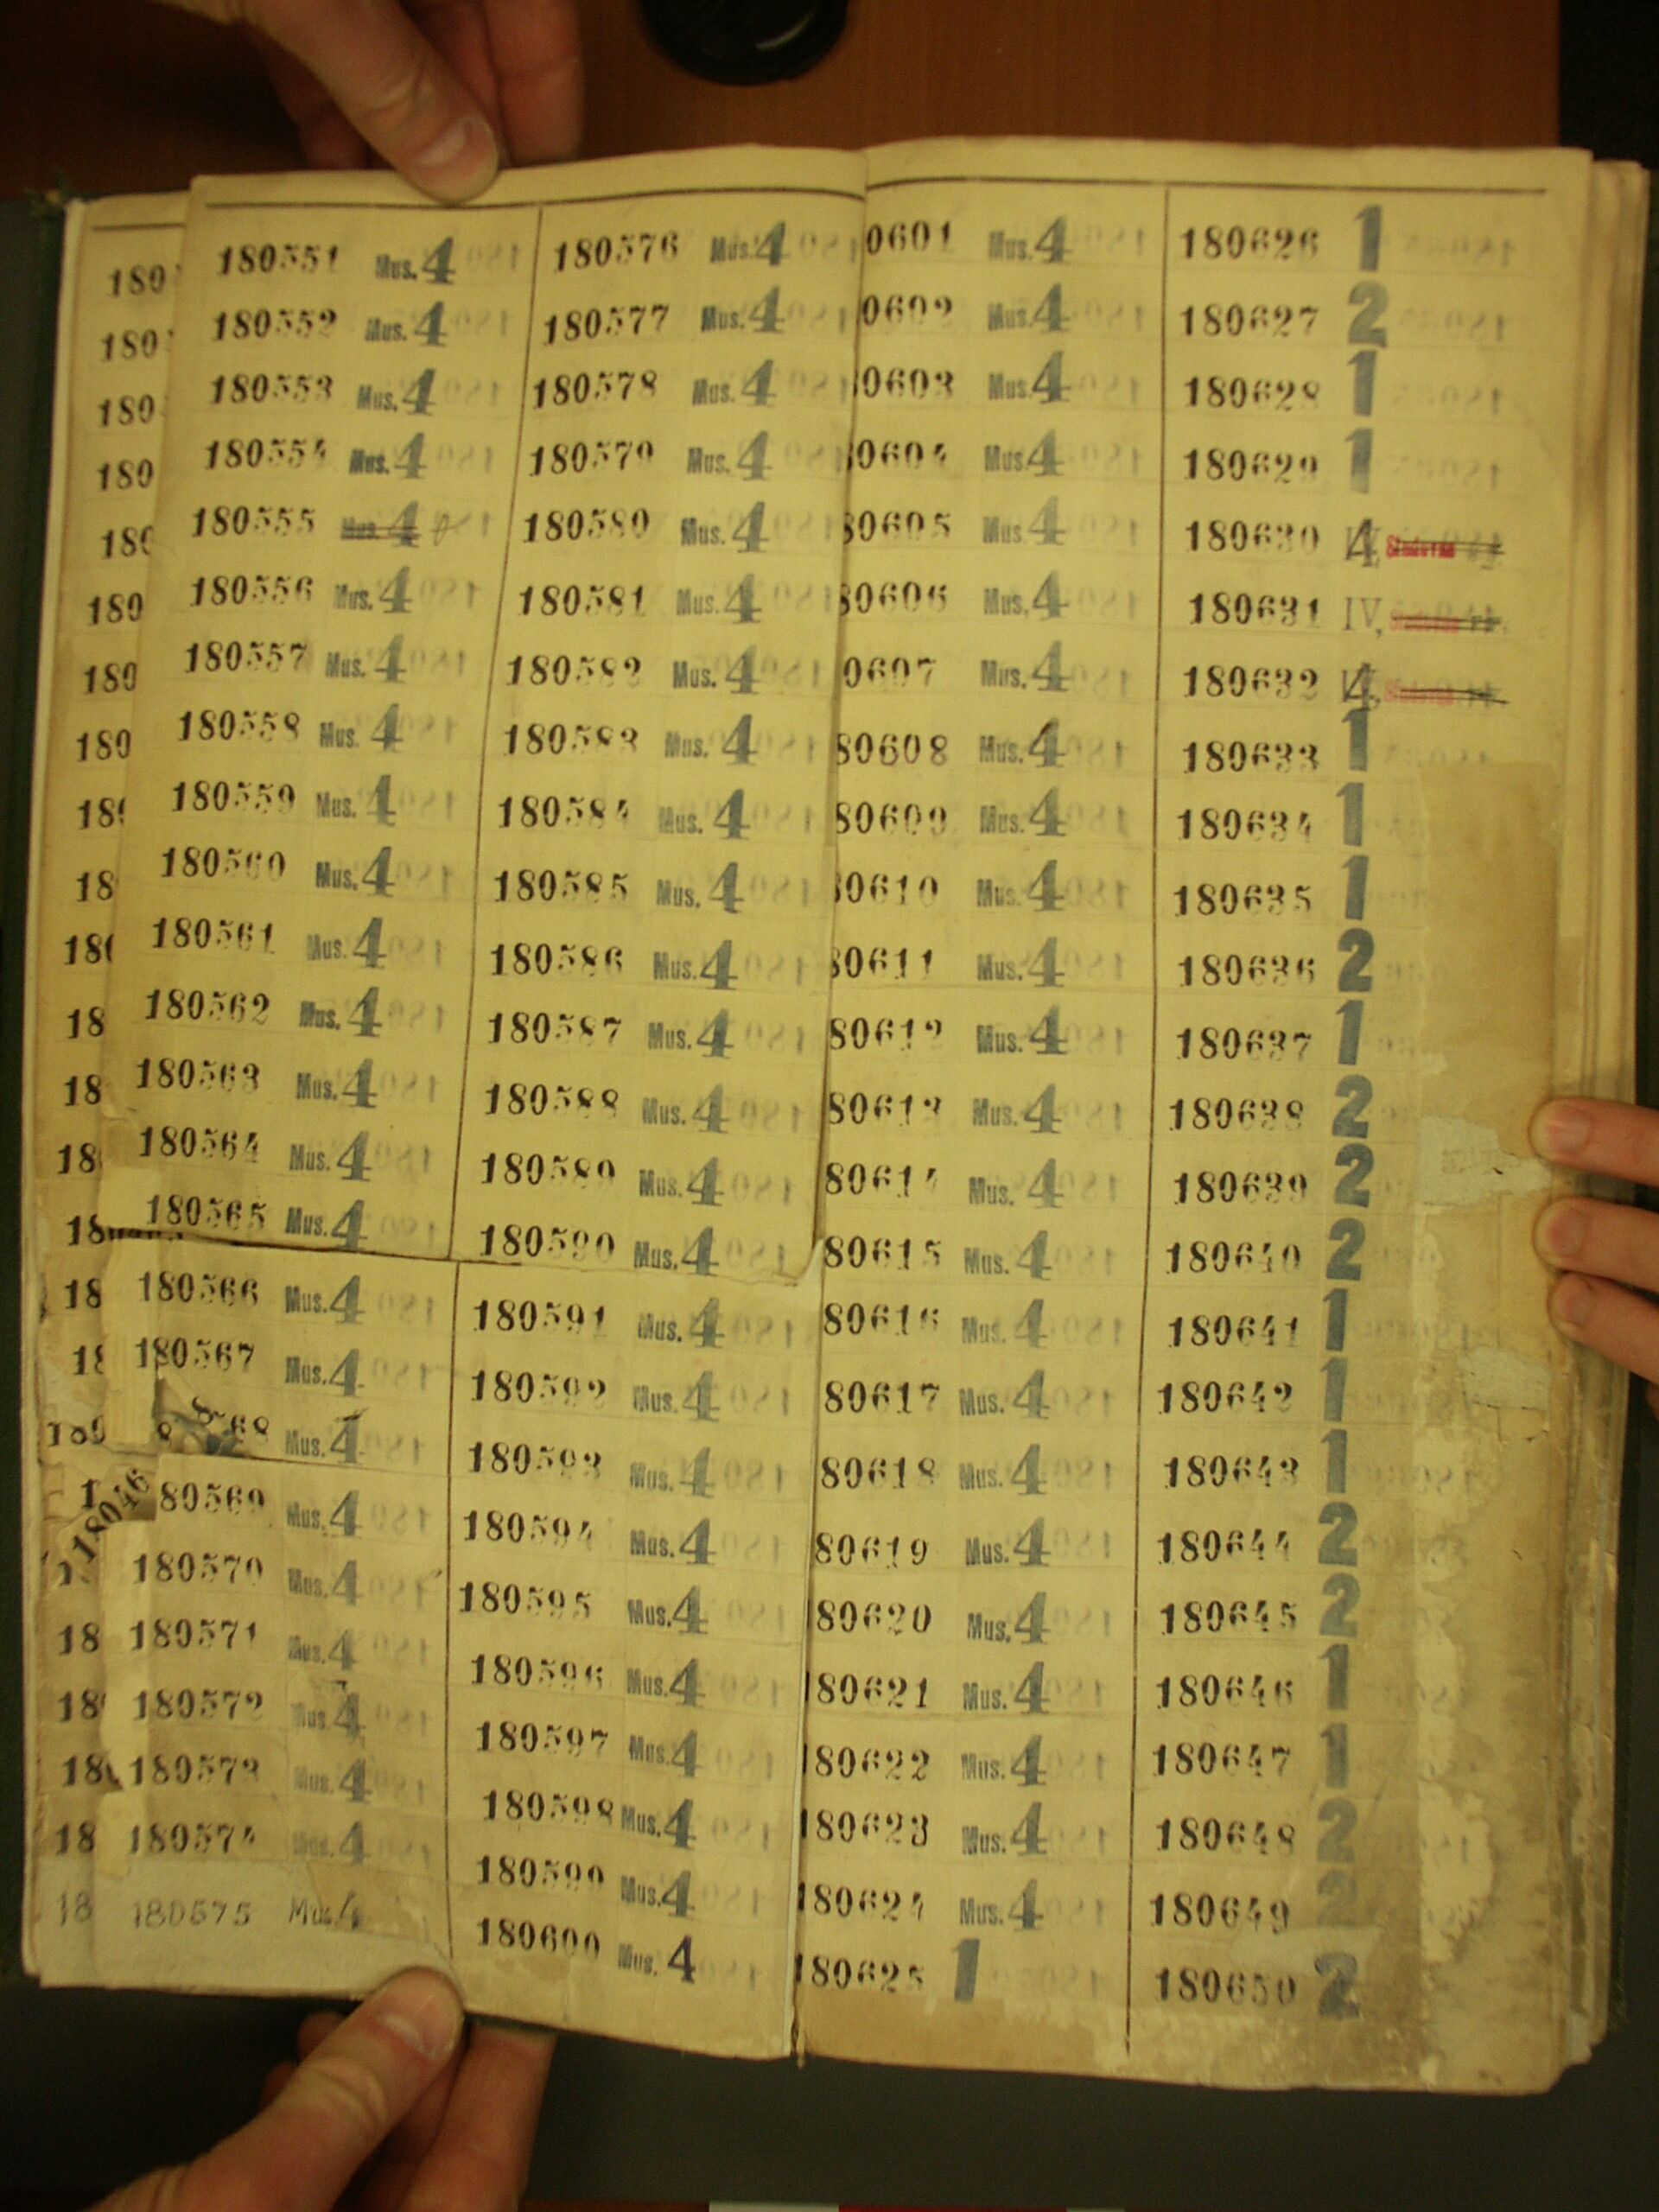 180551 Mus. 4
180552 Mus. 4
180553 Mus. 4
180554 Mus. 4
180555 Mus 4
180556 Mus. 4
180557 Mus. 4
180558 Mus. 4
180559 Mus. 4
180560 Mus. 4
180561 Mus. 4
180562 Mus. 4
180563 Mus. 4
180564 Mus. 4
180565 Mus. 4
180566 Mus. 4
180567 Mus. 4
68 Mus. 4
80569 Mus. 4
180570 Mus. 4
180571 Mus. 4
180572 Mus 4
180573 Mus. 4
180574 Mus. 4
180575 Mus. 4
180576 Mus. 4
180577 Mus. 4
180578 Mus. 4
180579 Mus. 4
180580 Mus. 4
180581 Mus. 4
180582 Mus. 4
180583 Mus. 4
180584 Mus. 4
180585 Mus. 4
180586 Mus. 4
180587 Mus. 4
180588 Mus. 4
180589 Mus. 4
180590 Mus. 4
180591 Mus. 4
180592 Mus. 4
180593 Mus. 4
180594 Mus. 4
180595 Mus. 4
180596 Mus. 4
180597 Mus. 4
180598 Mus. 4
180599 Mus. 4
180600 Mus. 4
0601 Mus. 4
0602 Mus. 4
0603 Mus. 4
0604 Mus 4
80605 Mus 4
80606 Mus. 4
0607 Mus. 4
80608 Mus. 4
80609 Mus. 4
0610 Mus. 4
80611 Mus. 4
80612 Mus. 4
80613 Mus. 4
80614 Mus. 4
80615 Mus. 4
80616 Mus. 4
80617 Mus. 4
80618 Mus. 4
80619 Mus. 4
180620 Mus. 4
180621 Mus. 4
180622 Mus. 4
180623 Mus. 4
180624 Mus. 4
180625 1
180626 1
180627 2
180628 1
180629 1
180630 4
180631 IV,
180632 4
180633 1
180634 1
180635 1
180636 2
180637 1
180638 2
180639 2
180640 2
180641 1
180642 1
180643 1
180644 2
180645 2
180646 1
180647 1
180648 2
180649 2
180650 2